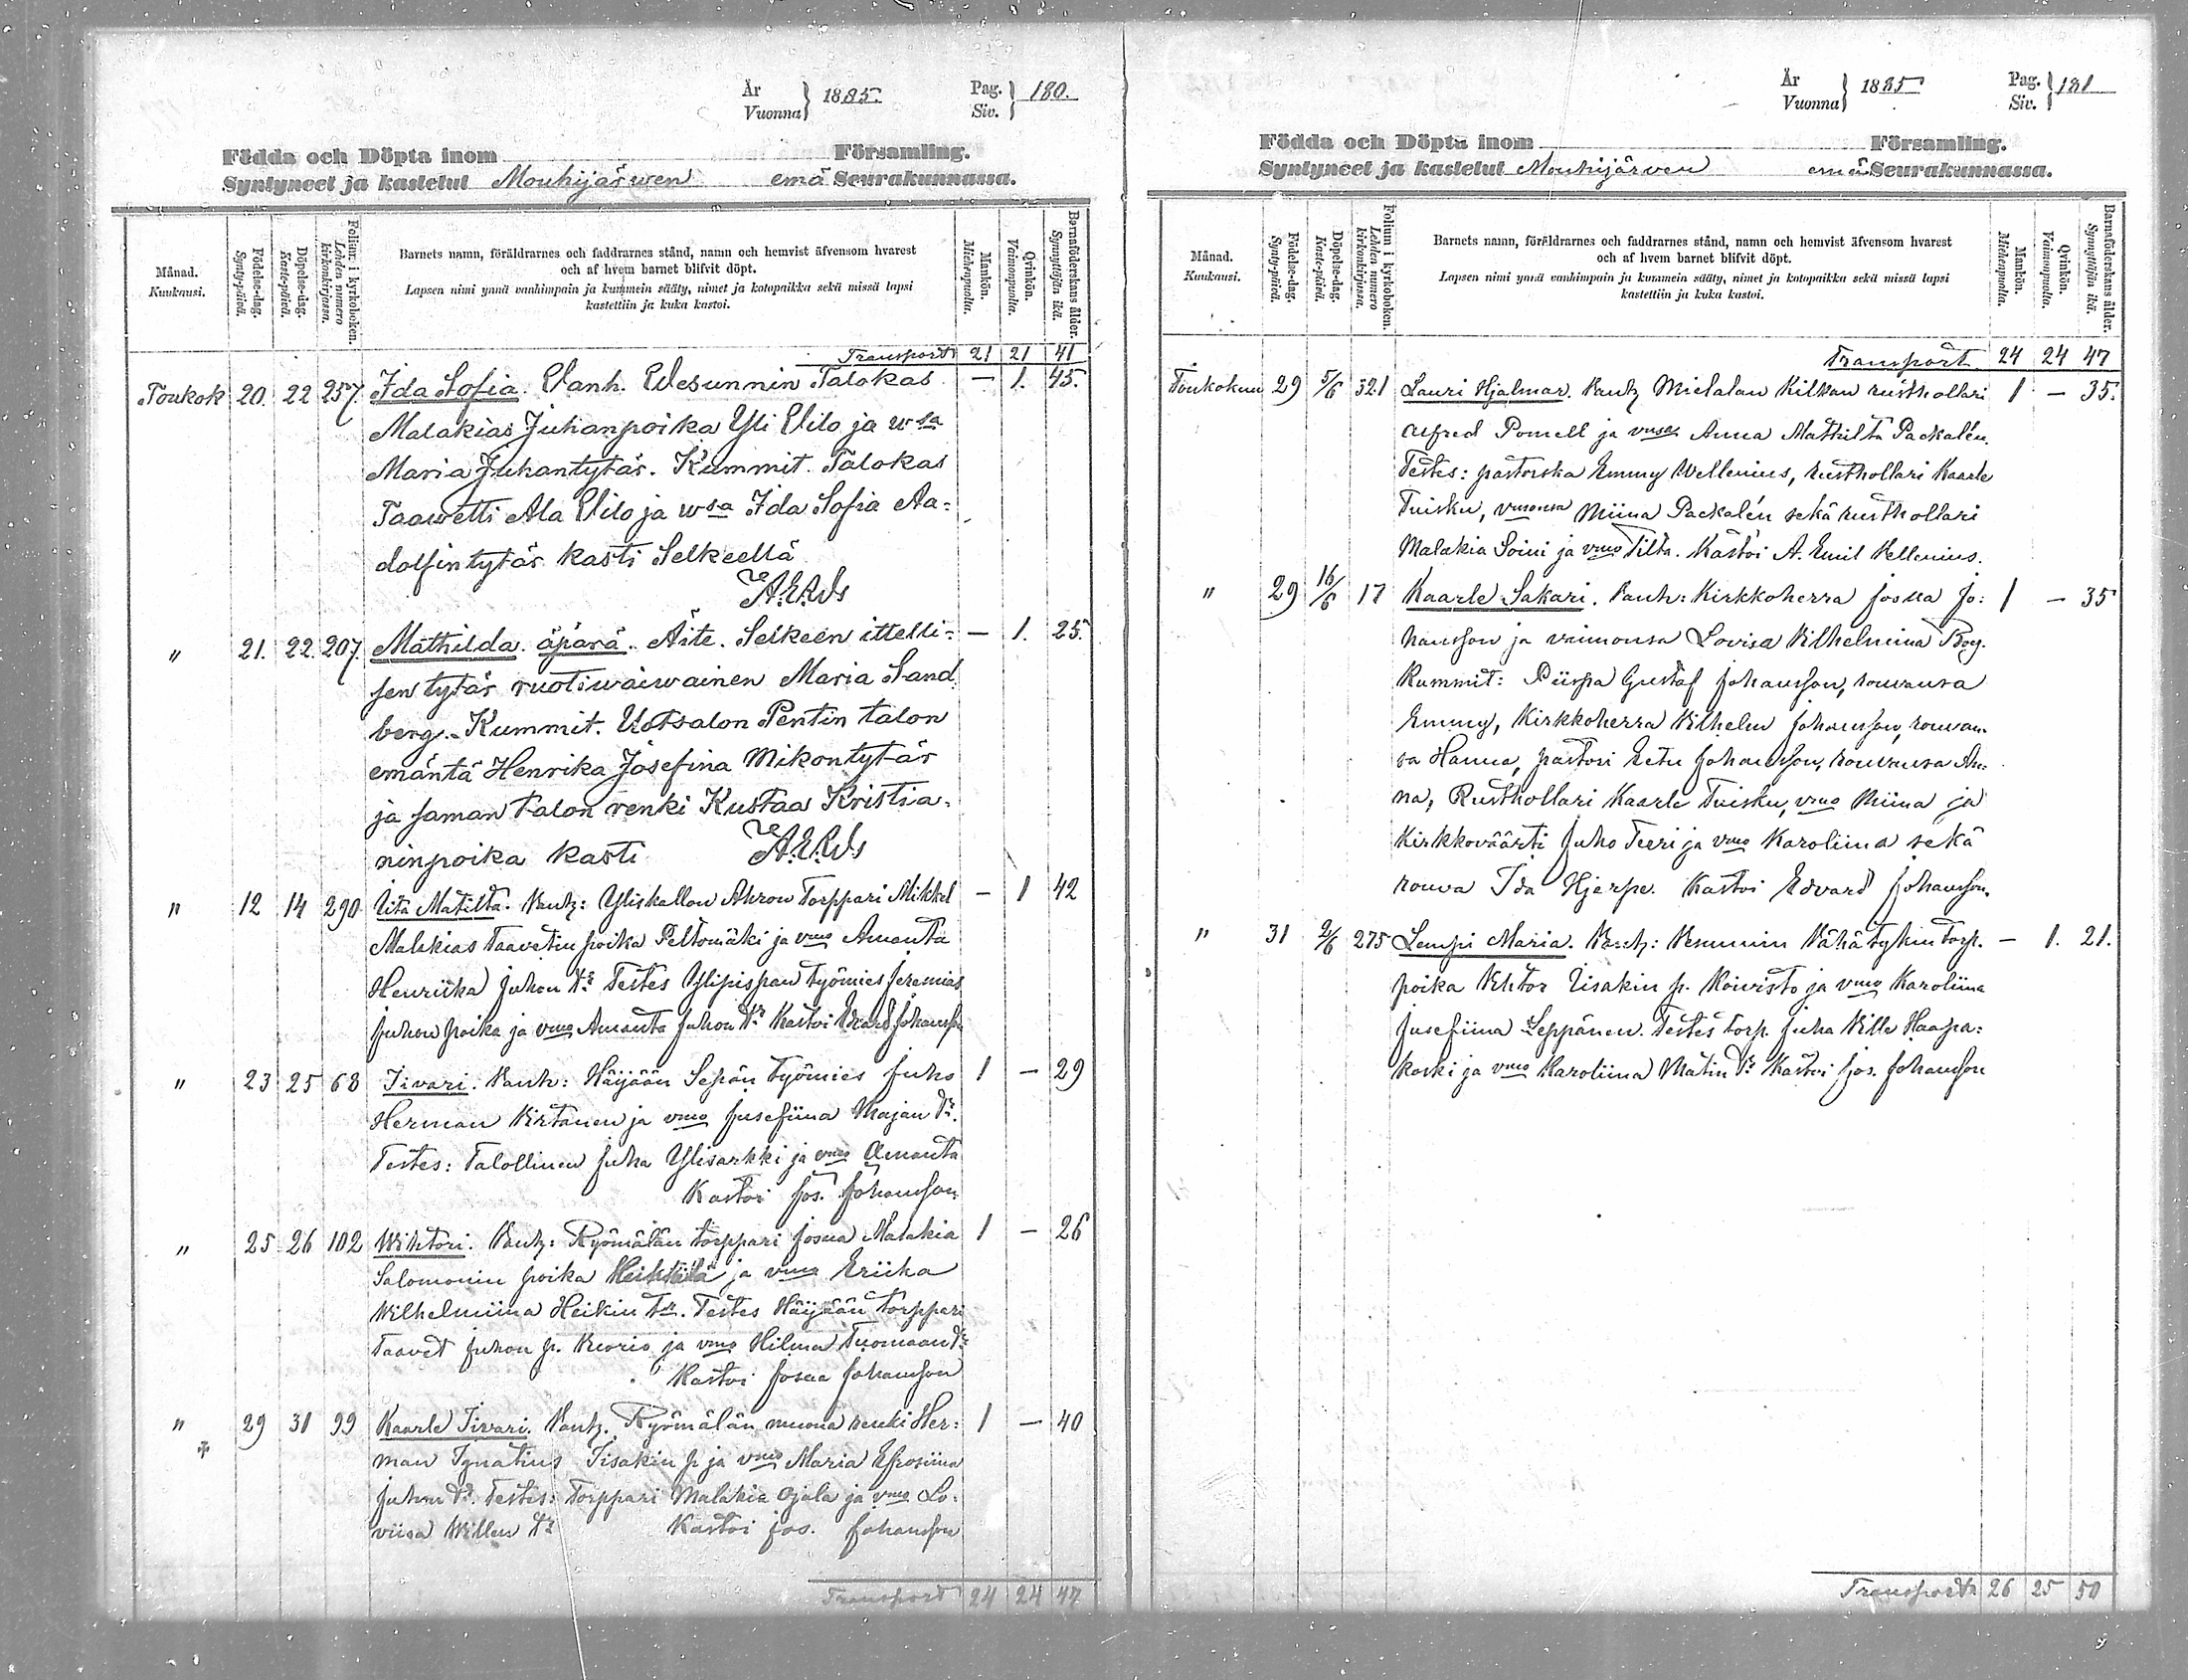 År
Vuonna } 1885. Pag.
Siv. } 180.
Födda och Döpta inom Församling.
Syntyneet ja kastetut Mouhijärwen emä Seurakunnassa.
Månad.
Kuukausi.
Födelse-dag.
Synty-päivä.
Döpelse-dag.
Kaste-päivä.
Folium i kyrkoboken.
Lehden numero kirkonkirjassa.
Barnets namn, föräldrarnes och faddrarnes stånd, namn och hemvist äfvensom hvarest
och af hvem barnet blifvit döpt.
Lapsen nimi ynnä vanhimpain ja kummein sääty, nimet ja kotopaikka sekä missä lapsi
kastettiin ja kuka kastoi.
Mankön.
Miehenpuolta.
Qvinkön.
Vaimonpuolta.
Barnaföderskans ålder.
Synnyttäjän ikä.
Transport 21 21 41
Toukok 20. 22 257 Ida Sofia. Vanh. Wesunnin Talokas — 1. 45.
Malakias Juhanpoika Yli Vilo ja wsa
Maria Juhantytär. Kummit. Talokas
Taawetti Ala Vilo ja wsa Ida Sofia Aa=
dolfintytär kasti Selkeellä
" 21. 22. 207. Mathilda. äpärä. Äite. Selkeen ittelli= — 1. 25.
sen tytär ruotiwaiwainen Maria Sand
berg. Kummit. Uotsalon Pentin talon
emäntä Henrika Josefina Mikontytär
ja saman talon renki Kustaa Kristia=
ninpoika kasti
" 12 14 290 Iita Matilta. Vanh: Yliskallon Ahron Torppari Mikkel — 1 42
Malakias Taavetin poika Peltomäki ja vmo Amanta
Henriika Juhon tr. Testes Ylipispan työmies Jeremias
Juhon poika ja vmo Amanta Juhon tr Kastoi Edvard Johansson
" 23 25 68 Iivari. Vanh: Häijään Sepän työmies Juho 1 — 29
Herman Virtanen ja vmo Jusefiina Majan tr.
Testes: Talollinen Juha Ylisarkki ja vmo Amanta
Kastoi Jos. Johansson
" 25 26 102 Wihtori. Vanh: Ryömälän torppari Josua Malakia 1 — 26
Salomonin poika Heikkilä ja vmo Eriika
Wilhelmiina Heikin tr. Testes Häijään torppari
Taavet Juhon p. Vuorio ja vmo Hilma Tuomaan tr
Kastoi Josua Johansson
" 29 31 99 Kaarle Iivari. Vanh. Ryömälän muona renki Her= 1 — 40
man Ignatius Iisakin p ja vmo Maria Efrosiina
Juhon tr. Testes: Torppari Malakia Ojala ja vmo Lo=
viisa Willen tr Kastoi Jos. Johansson
Transport 24 24 47
År
Vuonna } 1885 Pag.
Siv. } 181
Födda och Döpta inom Församling.
Syntyneet ja kastetut Mouhijärven emä Seurakunnassa.
Månad.
Kuukausi.
Födelse-dag.
Synty-päivä.
Döpelse-dag.
Kaste-päivä.
Folium i kyrkoboken.
Lehden numero kirkonkirjassa.
Barnets namn, föräldrarnes och faddrarnes stånd, namn och hemvist äfvensom hvarest
och af hvem barnet blifvit döpt.
Lapsen nimi ynnä vanhimpain ja kummein sääty, nimet ja kotopaikka sekä missä lapsi
kastettiin ja kuka kastoi.
Mankön.
Miehenpuolta.
Qvinkön.
Vaimonpuolta.
Barnaföderskans ålder.
Synnyttäjän ikä.
Transport 24 24 47
Toukokuu 29 5/6 321 Lauri Hjalmar. Vanh Mietalan Kilkan rusthollari 1 — 35.
Alfred Pomell ja vmsa Anna Mathilta Packalén.
Testes: pastorska Emmy Wellenius, rusthollari Kaarle
Tuisku, vmonsa Miina Packalén sekä rusthollari
Malakia Soini ja vmo Tilta. Kastoi A. Emil Vellenius.
" 29 16/6 17 Kaarle Sakari. Vanh: Kirkkoherra Josua Jo= 1 — 35
hansson ja vaimonsa Lovisa Vilhelmina Roy.
Kummit: Piispa Gustaf Johansson, rouvansa
Emmy, Kirkkoherra Vilhelm Johansson, rouvan=
sa Hanna, pastori Eetu Johansson, rouvansa An=
na, Rusthollari Kaarle Tuisku, vmo Miina ja
Kirkkoväärti Juho Teeri ja vmo Karoliina sekä
rouva Ida Hjerpe. Kastoi Edvard Johansson.
" 31 2/6 275 Lempi Maria. Vanh: Vesunnin Vähätykin torp. — 1. 21.
poika Vihtor Iisakin p. Koivisto ja vmo Karoliina
Jusefiina Seppänen. Testes torp. Juha Ville Haapa=
koski ja vmo Karoliina Matin tr Kastoi Jos. Johansson
Transport 26 25 50